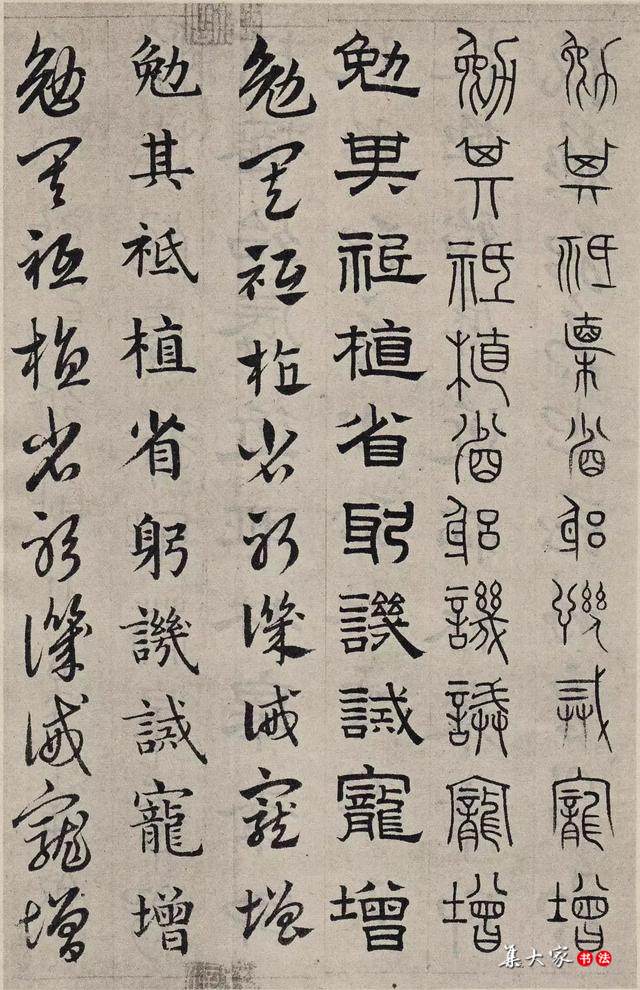 勉其祗植省躬譏誡寵增
勉其祗植省躬譏誡寵增
勉其祗植省躬譏誡寵增
勉其祗植省躬譏誡寵增
勉其祗植省躬譏誡寵增
勉其祗植省躬譏誡寵增
集大家书法